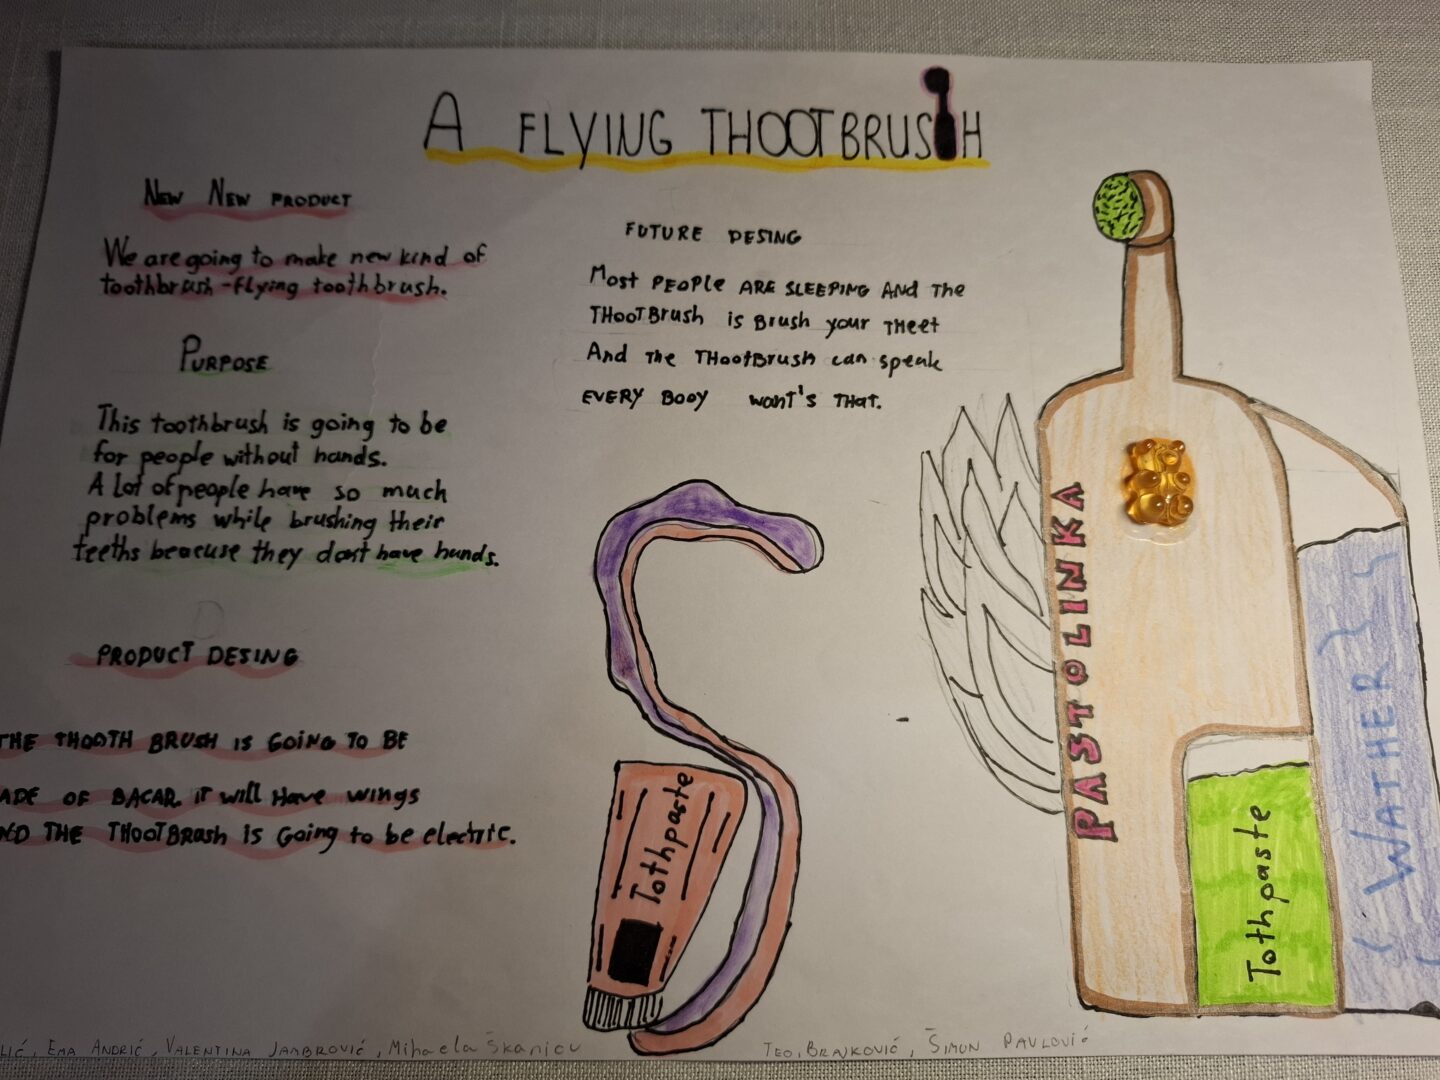 A FLYING THOOTBRUSH
NEW NEW PRODUCT
We are going to make new kind of
toothbrush-flying toothbrush.
PURPOSE
This toothbrush is going to be
for people without hands.
A lot of people have so much
problems while brushing their
teeths beacuse they dont have hands.
PRODUCT DESING
THE THOOTH BRUSH IS GOING TO BE
ADE OF BACAR. IT will HAVE WINGS
ND THE THOOTBRush is Going to be electric.
FUTURE DESING
Most PEOPLE ARE SLEEPING AND The
THOOTBrush is Brush your THEET
And the THootBrush can speak
EVERY BODY WANT'S THAT.
Tothpaste
PASTOLINKA
Tothpaste
WATHER
LIĆ, EMA ANDRIĆ, VALENTINA JAMBROVIĆ, Mihaela
TEO BRAJKOVIĆ, ŠIMUN PAVLOVIĆ